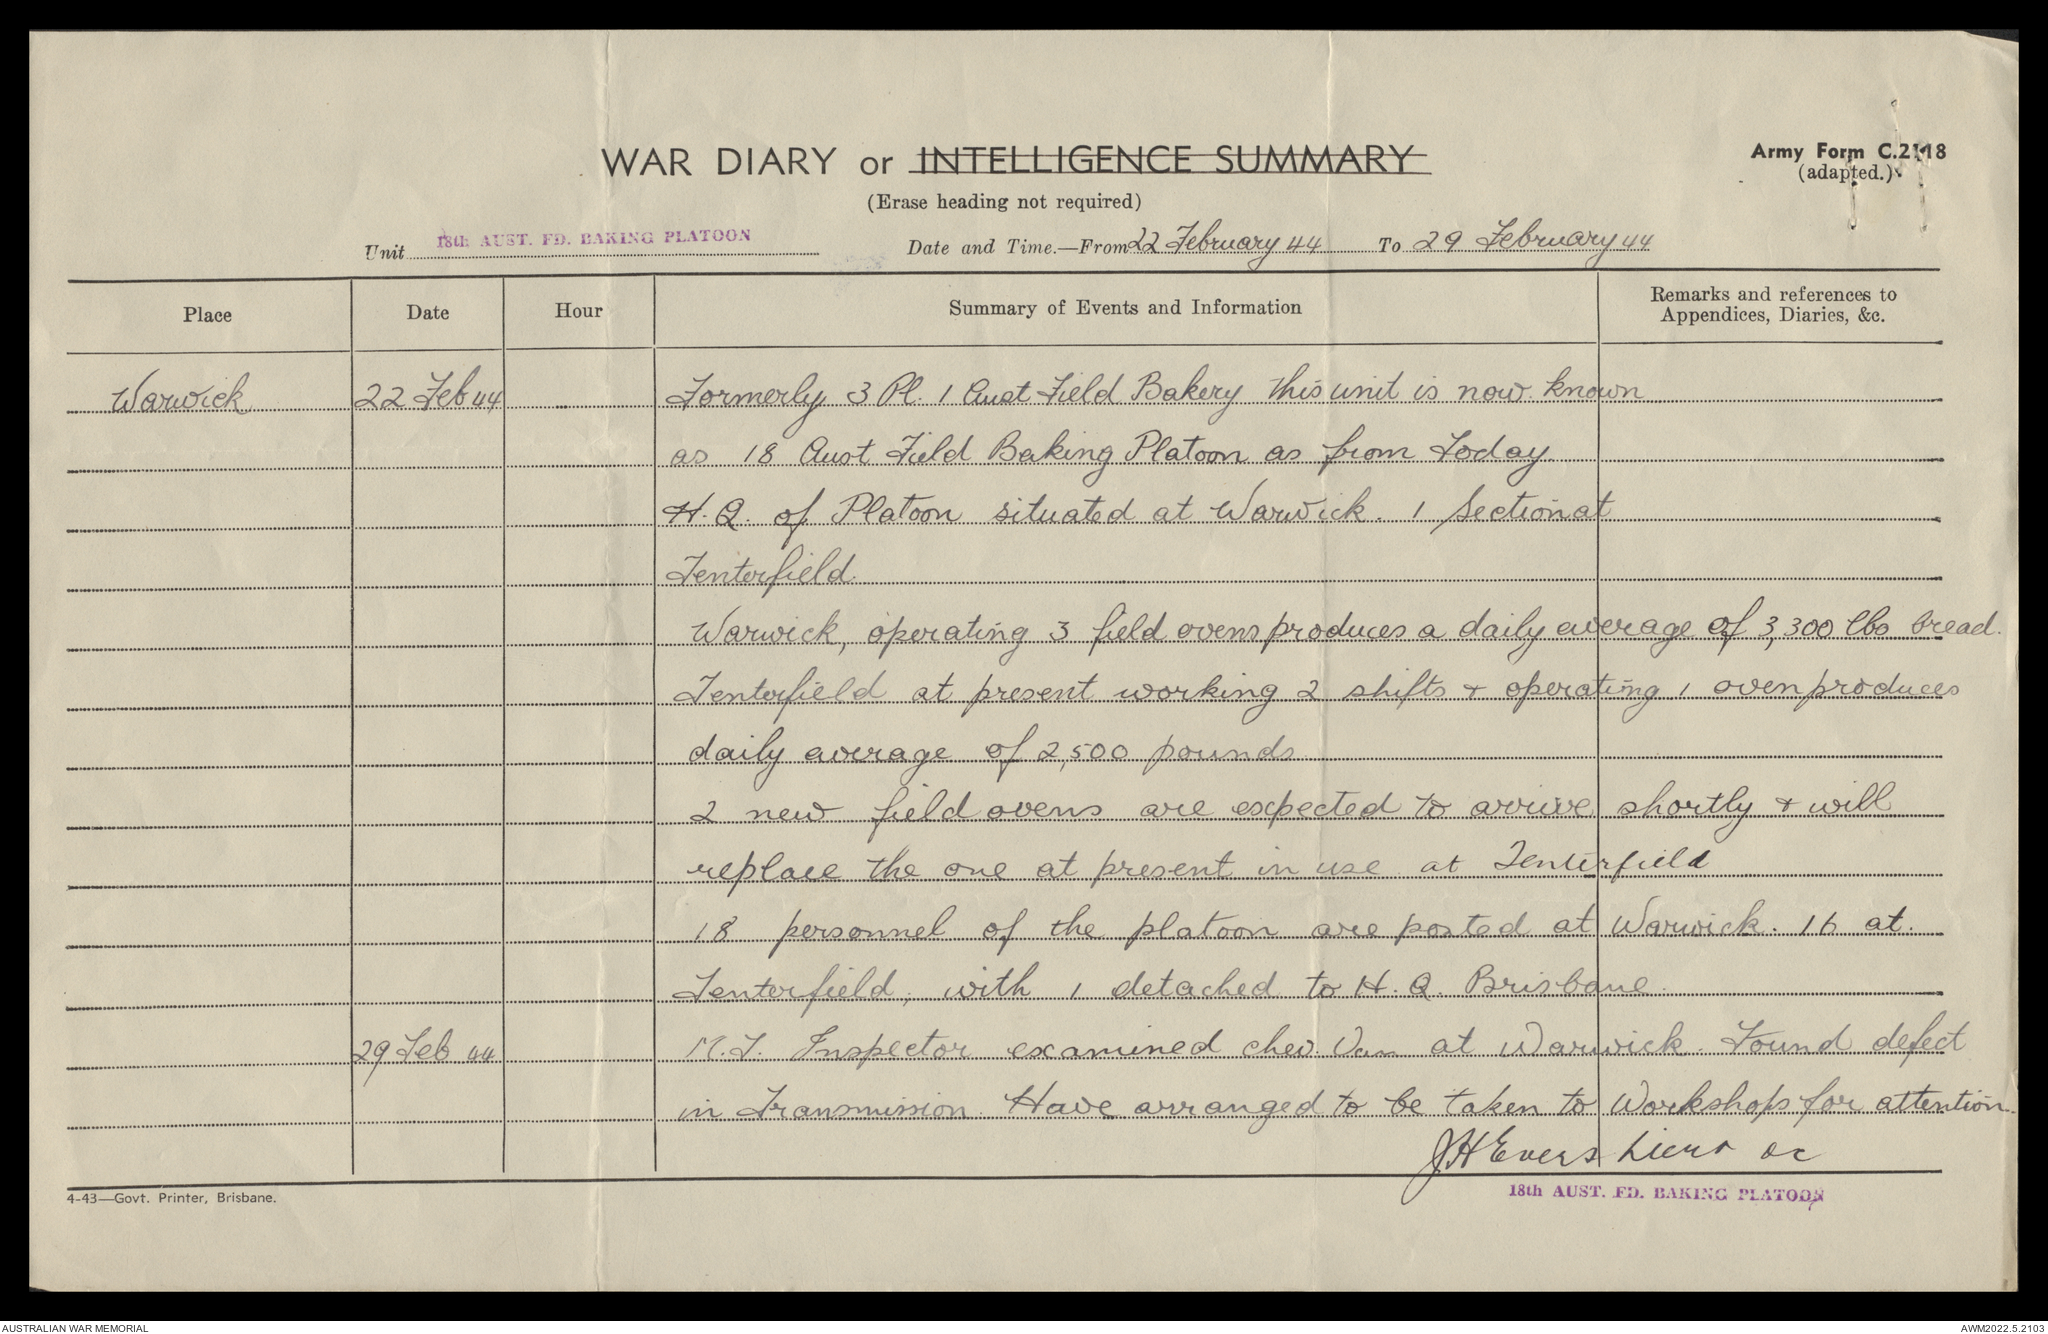 WAR DIARY or INTELLIGENCE SUMMARY
(Erase heading not required)
Army Form C.2118
(adapted.)
Unit 18th AUST. FD. BAKING PLATOON
Date and Time.—From 22 February 44 To 29 February 44
Place Date Hour Summary of Events and Information Remarks and references to
Appendices, Diaries, &c.
Warwick 22 Feb 44 Formerly 3 Pl. 1 Aust Field Bakery this unit is now known
as 18 Aust Field Baking Platoon as from today
H.Q. of Platoon situated at Warwick. 1 Section at
Tenterfield.
Warwick, operating 3 field ovens produces a daily average of 3,300 lbs bread.
Tenterfield at present working 2 shifts + operating 1 oven produces
daily average of 2,500 pounds.
2 new field ovens are expected to arrive shortly + will
replace the one at present in use at Tenterfield
18 personnel of the platoon are posted at Warwick. 16 at.
Tenterfield, with 1 detached to H.Q. Brisbane.
29 Feb 44 M.T. Inspector examined chev. Van at Warwick. Found defect
in Transmission. Have arranged to be taken to Workshops for attention.
JH Evers Lieut OC
18th AUST. FD. BAKING PLATOON
4-43—Govt. Printer, Brisbane.
AUSTRALIAN WAR MEMORIAL
AWM2022.5.2103